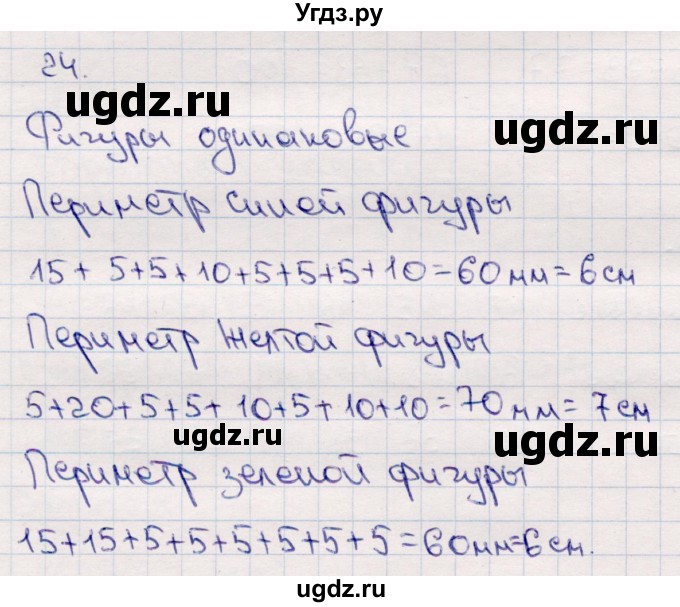 Угдз.ру
24.
ugdz.ru
ugdz.ru
Фигуры одинаковые
Периметр синей фигуры
15 + 5+5+10+5+5+5+10=60мм=6см
Периметр желтой фигуры
5+20+5+5+10+5+10+10=70мм=7см
ugdz.ru
ugdz.ru
Периметр зеленой фигуры
15+15+5+5+5+5+5+5=60мм=6см.
ugdz.ru